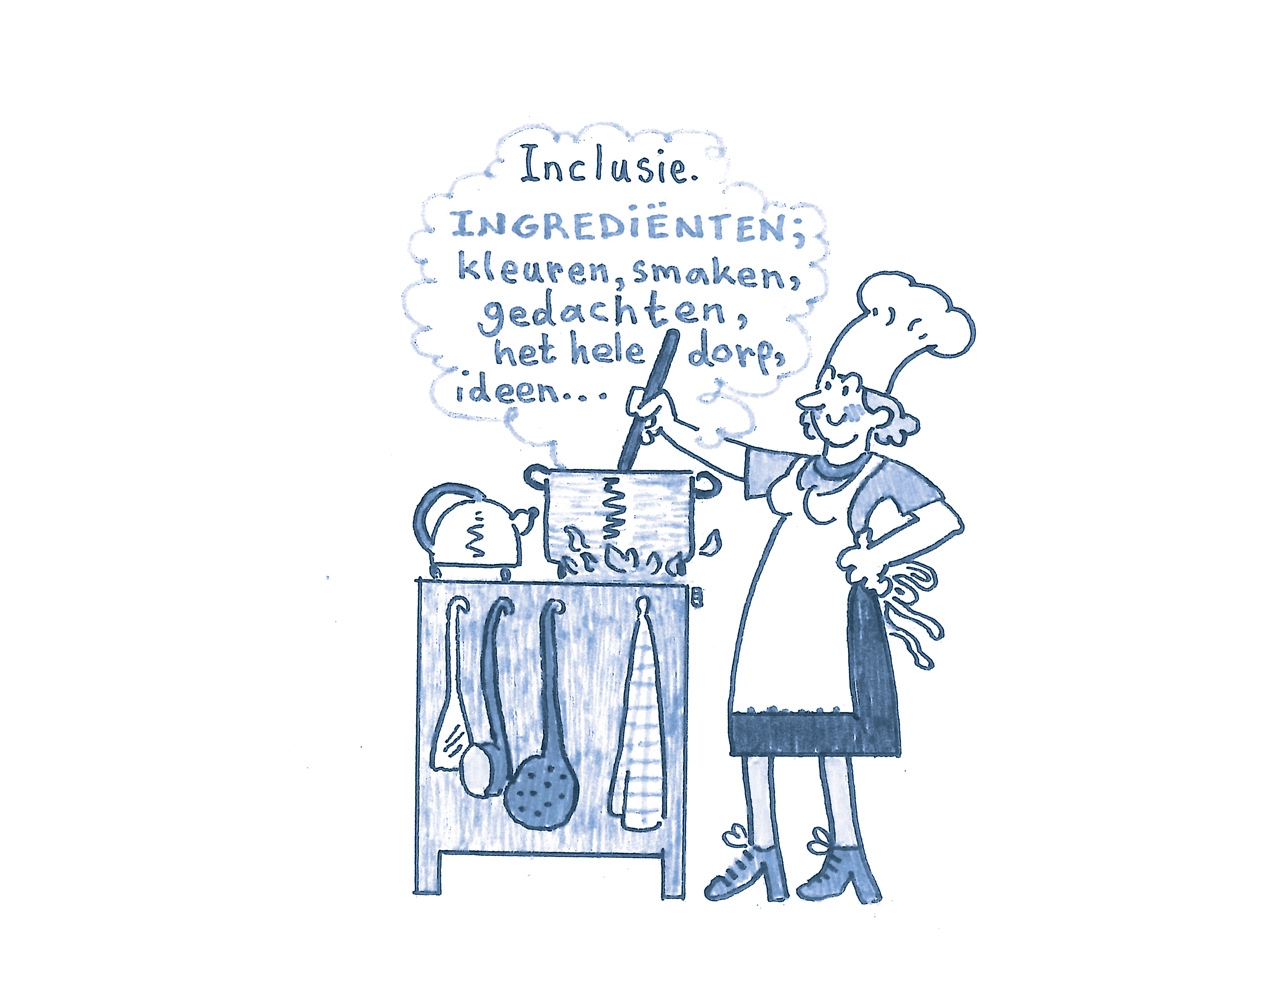 Inclusie.
INGREDIËNTEN;
kleuren, smaken,
gedachten,
het hele dorp,
ideen...